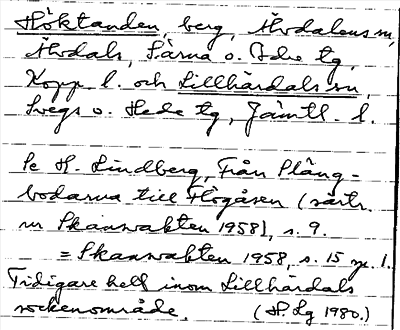 Höktanden, berg, Älvdalens sn,
Älvdals, Särna o. Idre tg,
Kopp. l. och Lillhärdals sn,
Svegs o. Hede tg, Jämtl. l.
Se H. Lindberg, Från Pläng-
bodarna till Flogåsen (särtr.
ur Skansvakten 1958), s. 9.
= Skansvakten 1958, s. 15 sp. 1.
Tidigare helt inom Lillhärdals
sockenområde. (H. Lg 1980.)